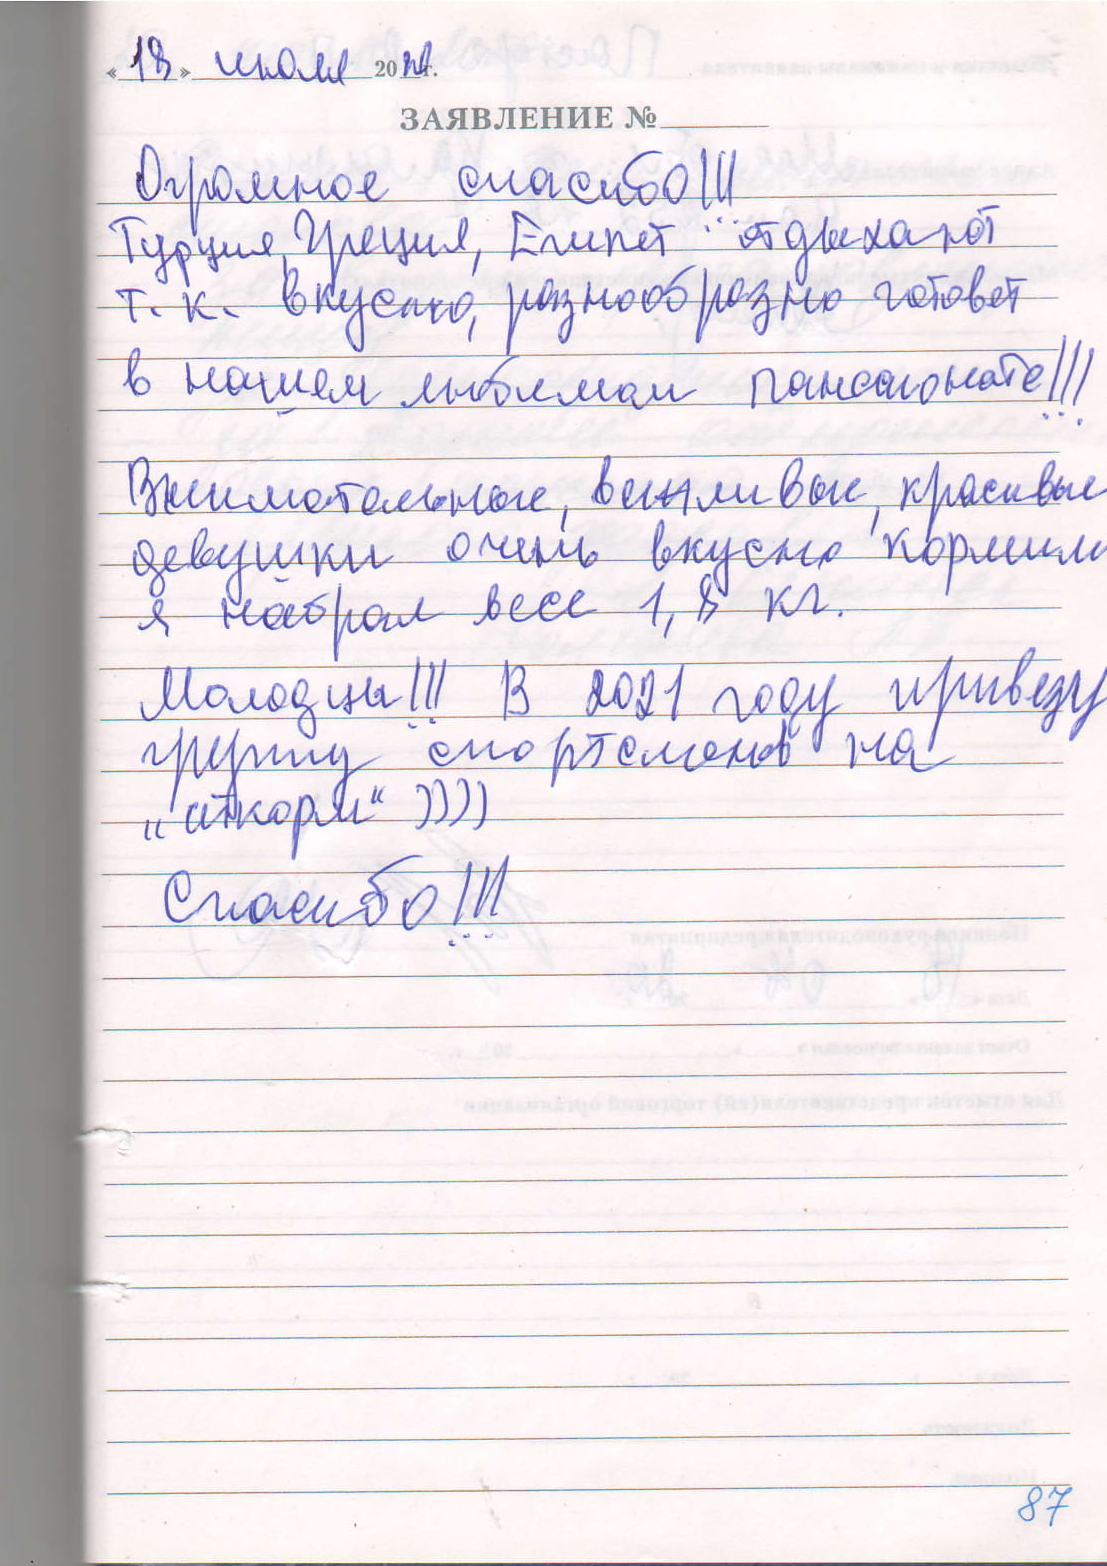 «18» июля 20 г.
ЗАЯВЛЕНИЕ №
Огромное спасибо!!!
Турция, Греция, Египет отдыхают
т. к. вкусно, разнообразно готовят
в нашем любимом пансионате!!!
Внимательные, вежливые, красивые
девушки очень вкусно кормили
я набрал весе 1,8 кг.
Молодцы!!! В 2021 году привезу
группу спортсменов на
„откорм“ ))))
Спасибо!!!
87